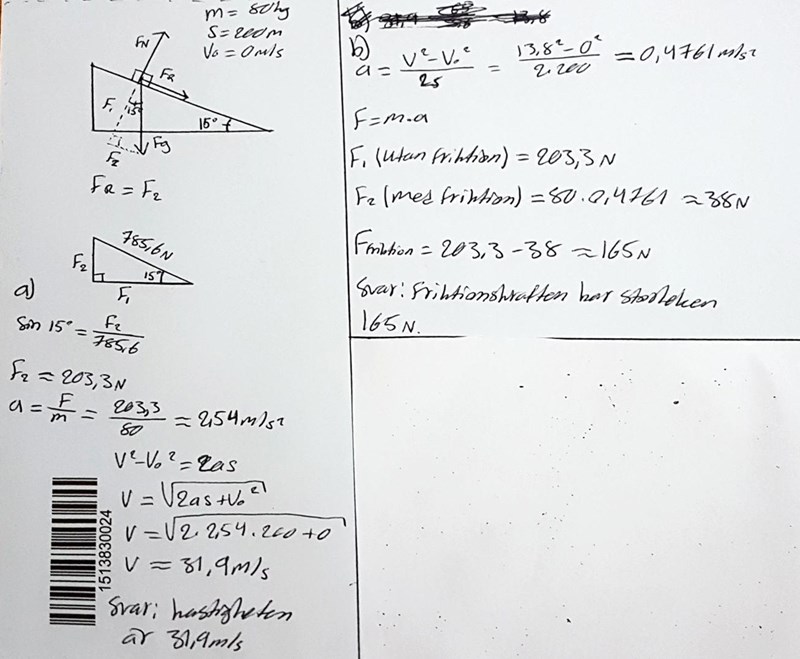 m = 80kg
S = 200m
V₀ = 0m/s
FN
FR
F₁
15°
15°
Fg
F₂
FR = F₂
785,6N
F₂
15°
F₁
a)
sin 15° = F₂/785,6
F₂ ≈ 203,3N
a = F/m = 203,3/80 ≈ 2,54m/s²
V²-V₀² = 2as
V = √2as+V₀²
V = √2·2,54·200+0
V ≈ 31,9m/s
Svar: hastigheten
är 31,9m/s
1513830024
b)
a = V²-V₀²/2s = 13,8²-0²/2·200 = 0,4761m/s²
F=m·a
F₁ (utan friktion) = 203,3N
F₂ (med friktion) = 80·0,4761 ≈ 38N
Ffriktion = 203,3-38 ≈ 165N
Svar: friktionskraften har storleken
165N.